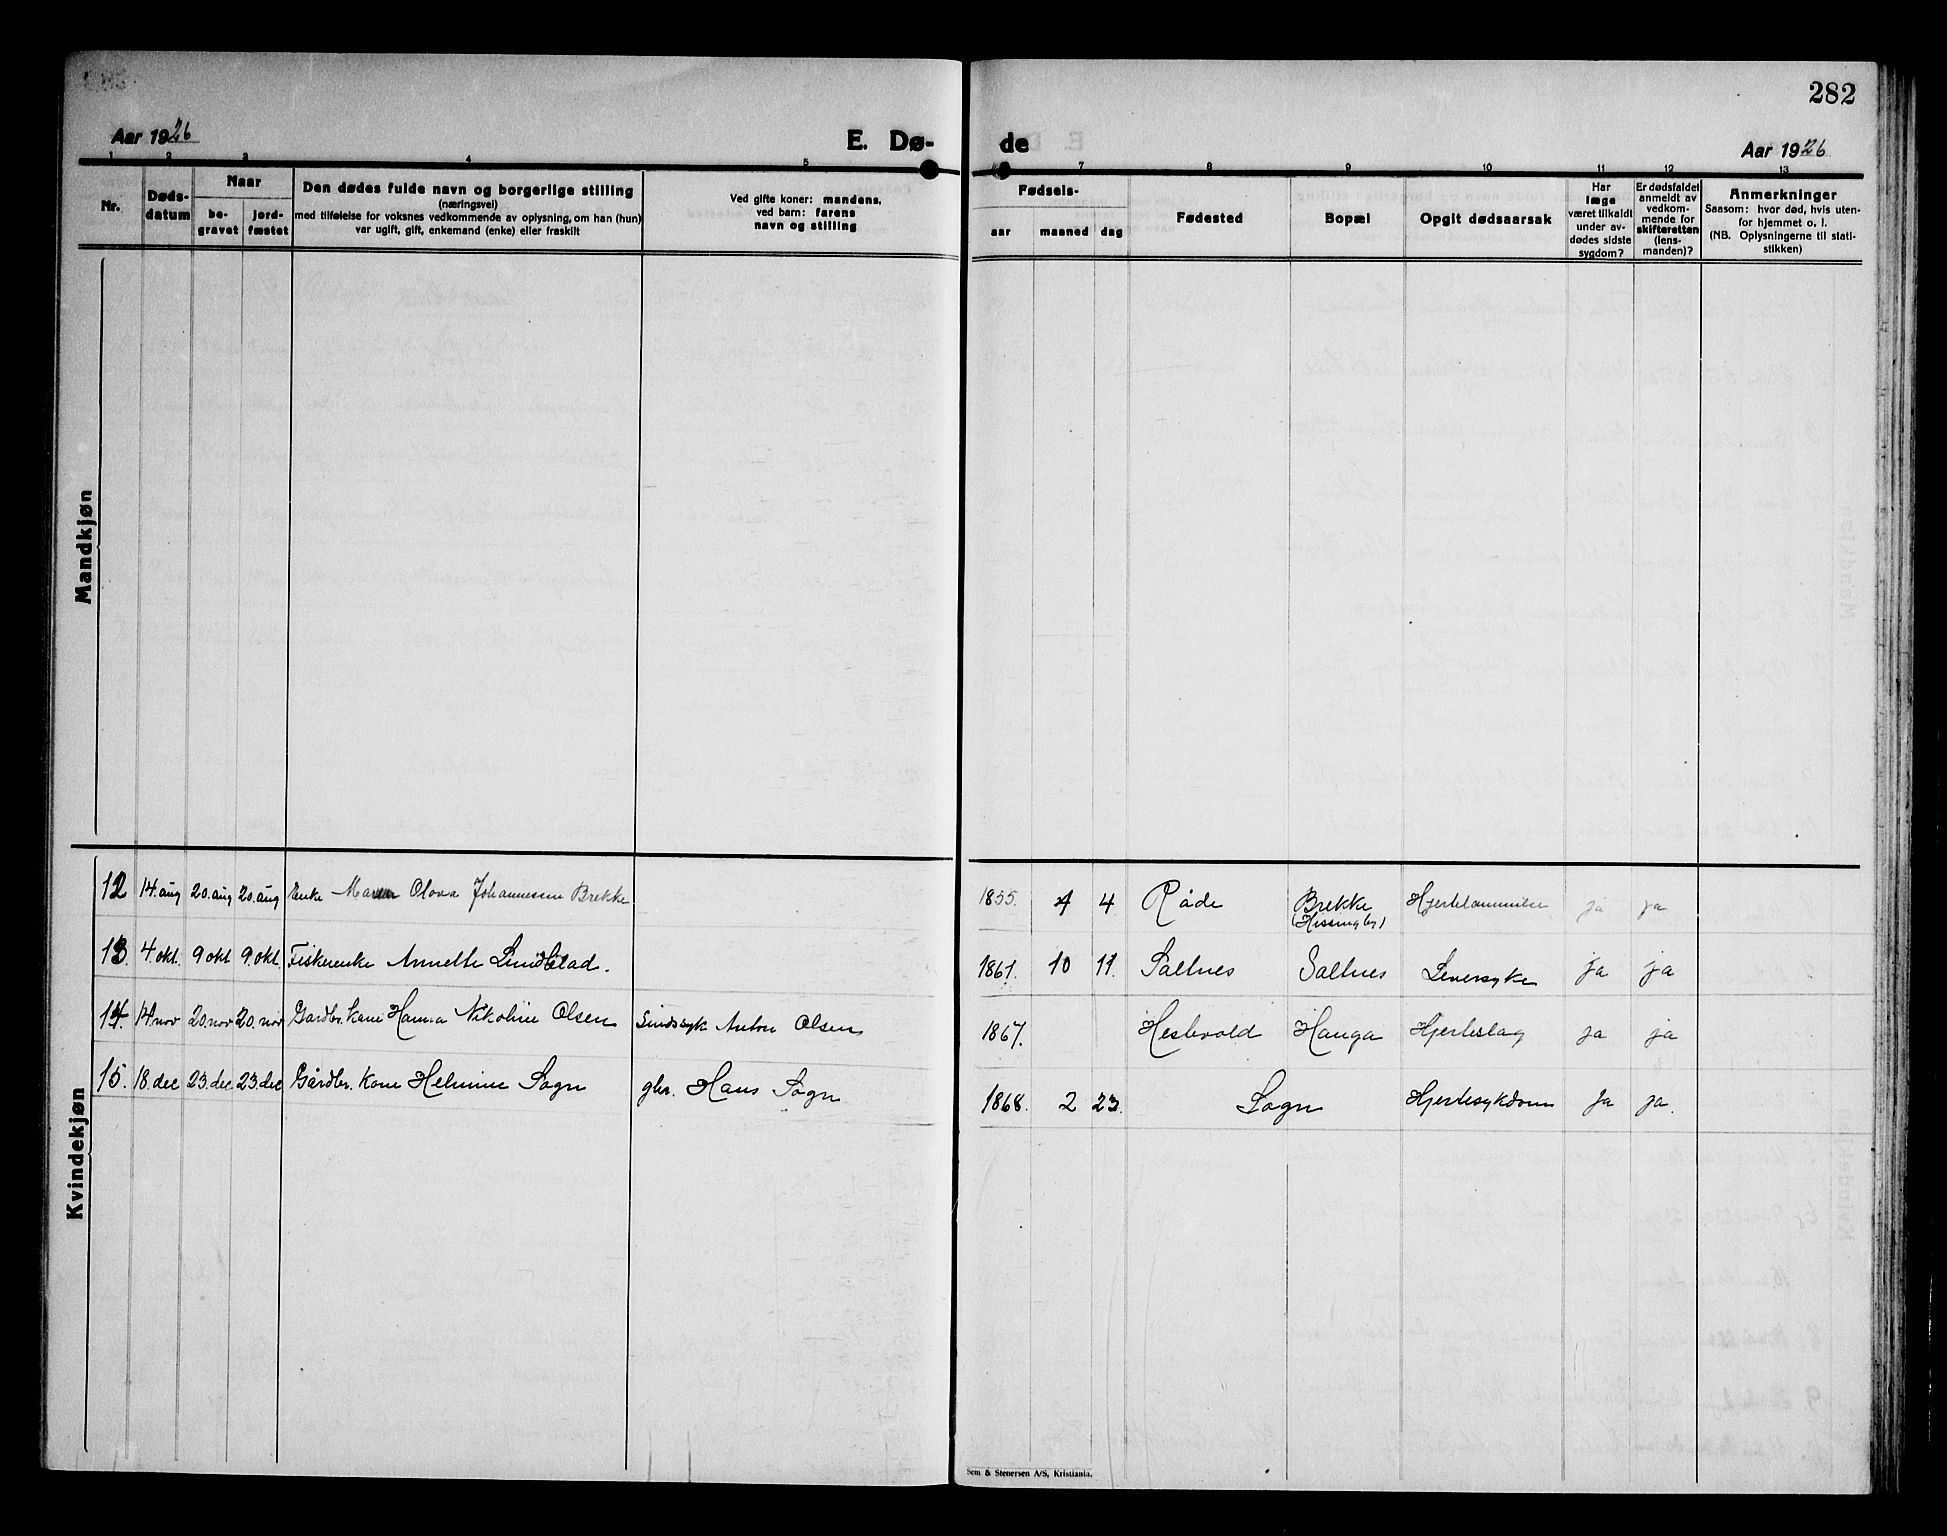 282
Aar 1926
E. Dø-
de
Aar 1926
1 2 3 4 5 7 8 9 10 11 12 13
Nr.
Døds-
datum
Naar
be-
gravet
jord-
fæstet
Den dødes fulde navn og borgerlige stilling
(næringsvei)
med tilføielse for voksnes vedkommende av oplysning, om han (hun)
var ugift, gift, enkemand (enke) eller fraskilt
Ved gifte koner: mandens,
ved barn: farens
navn og stilling
Fødsels-
aar maaned dag
Fødested
Bopæl
Opgit dødsaarsak
Har
læge
været tilkaldt
under av-
dødes sidste
sygdom?
Er dødsfaldet
anmeldt av
vedkom-
mende for
skifteretten
(lens-
manden)?
Anmerkninger
Saasom: hvor død, hvis uten-
for hjemmet o. l.
(NB. Oplysningerne til stati-
stikken)
Mandkjøn
Kvindekjøn
12 14. aug 20. aug 20. aug Enke Maren Olava Johannessen Brekke 1855. 4 4 Råde Brekke Hjertelammelse ja ja
(Hissingby)
13. 4. okt. 9 okt 9. okt. Fiskerenke Annette Lindblad. 1861. 10 11. Saltnes Saltnes Leversyke ja ja
14. 14. nov 20. nov 20. nov Gardbr. kone Hanna Nikoline Olsen Sindssyk Anton Olsen 1867. Hestevold Hauga Hjerteslag ja ja
15. 18. dec 23. dec 23. dec Gårdbr. kone Helmine Sogn gbr. Hans Sogn 1868. 2 23. Sogn Hjertesykdom ja ja.
Sem & Stenersen A/S, Kristiania.